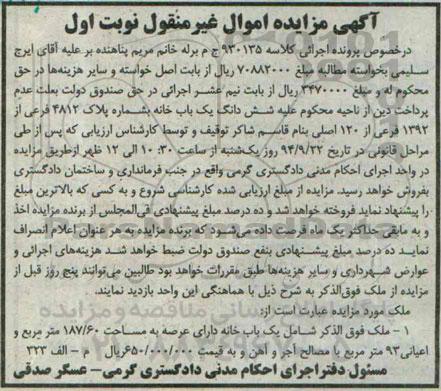 آگهی مزایده اموال غیرمنقول نوبت اول
درخصوص پرونده اجرائی کلاسه ۹۳۰۱۳۵ ج م برله خانم مریم پناهنده بر علیه آقای ایرج
سلیمی بخواسته مطالبه مبلغ ۷۰۸۸۲۰۰۰ ریال از بابت اصل خواسته و سایر هزینه‌ها در حق
محکوم له و مبلغ ۳۴۷۰۰۰۰ ریال از بابت نیم عشر اجرائی در حق صندوق دولت بعلت عدم
پرداخت دین از ناحیه محکوم علیه شش دانگ یک باب خانه بشماره پلاک ۴۸۱۲ فرعی از
۱۳۹۲ فرعی از ۱۲۰ اصلی بنام قاسم شاکر توقیف و توسط کارشناس ارزیابی که پس از طی
مراحل قانونی در تاریخ ۹۴/۹/۲۲ روز یک‌شنبه از ساعت ۱۰:۳۰ الی ۱۲ ظهر ازطریق مزایده
در واحد اجرای احکام مدنی دادگستری گرمی واقع در جنب فرمانداری و ساختمان دادگستری
بفروش خواهد رسید. مزایده از مبلغ ارزیابی شده کارشناسی شروع و به کسی که بالاترین مبلغ
را پیشنهاد نماید فروخته خواهد شد و ده درصد مبلغ پیشنهادی فی‌المجلس از برنده مزایده اخذ
و به مابقی حداکثر یک ماه فرصت داده می‌شود که برنده مزایده به هر عنوان اعلام انصراف
نماید ده درصد مبلغ پیشنهادی بنفع صندوق دولت ضبط خواهد شد هزینه‌های اجرائی و
عوارض شهرداری و سایر هزینه‌ها طبق مقررات خواهد بود طالبین می‌توانند پنج روز قبل از
مزایده از ملک فوق‌الذکر به شرح ذیل با هماهنگی این واحد بازدید نمایند.
ملک مورد مزایده عبارت است از:
۱ - ملک فوق الذکر شامل یک باب خانه دارای عرصه به مساحت ۱۸۷/۶۰ متر مربع و
اعیانی ۹۳ متر مربع با مصالح آجر و آهن و به قیمت ۶۵۰/۰۰۰/۰۰۰ریال م - الف ۳۲۳
مسئول دفتر اجرای احکام مدنی دادگستری گرمی- عسگر صدقی